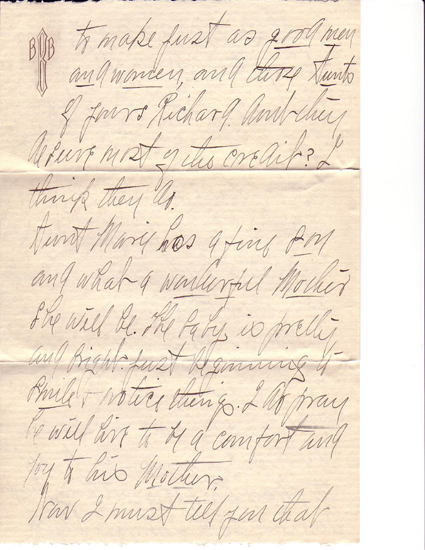 BDB
to make just as good men
and women, and those Aunts
of yours Richard. Dont they
deserve most of the credit? I
think they do.
Aunt Marie has a fine son
and what a wonderful Mother
she will be. The baby is pretty
and bright. just beginning to
smile & notice things. I do pray
he will live to be a comfort and
joy to his Mother.
Now I must tell you that